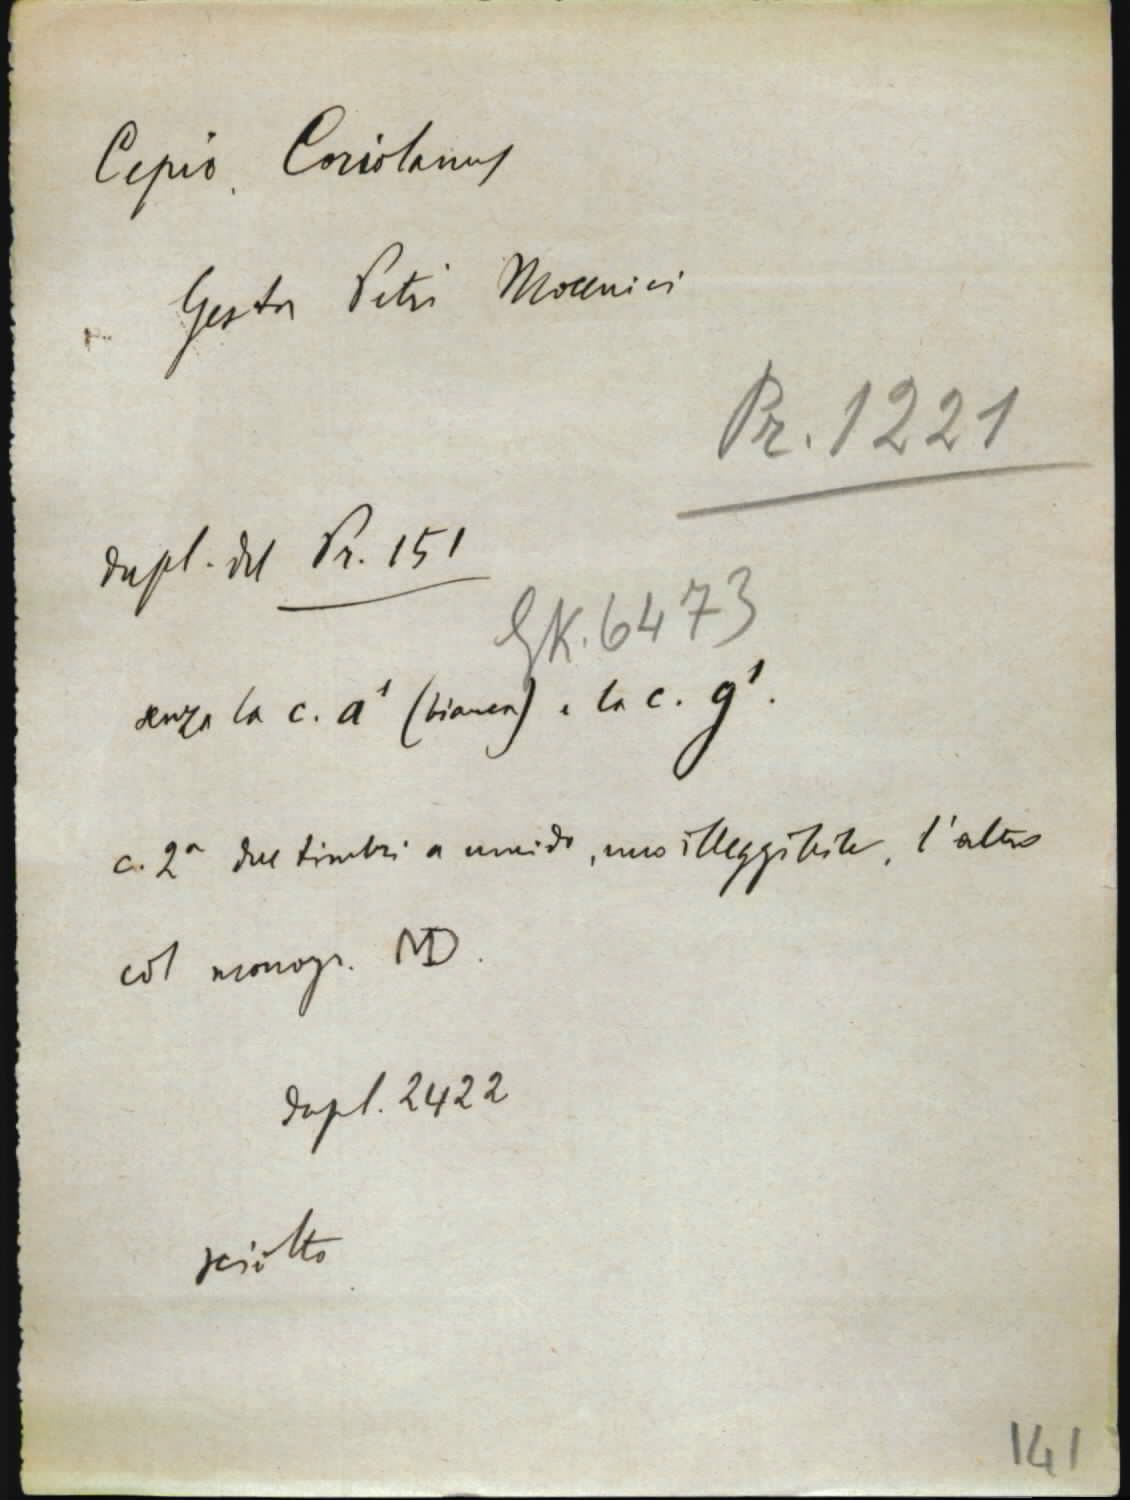 Cepio, Coriolanus
Gesta Petri Mocenici
Pr. 1221
dupl. del Pr. 151
GK. 6473
senza la c. a¹ (bianca) e la c. g¹.
c. 2ª due timbri a umido, uno illeggibile, l'altro
col monogr. MD.
dupl. 2422
sciolto
141